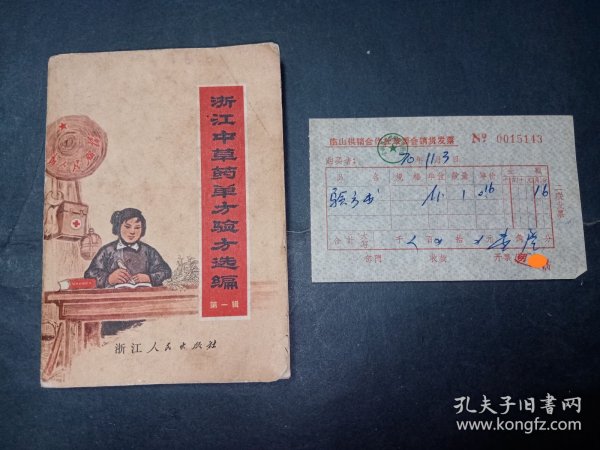 浙江中草药单方验方选编
第一辑
浙江人民出版社
南山供销合作社革委会销货发票 № 0015143
70年11月3日
品名 规格 单位 数量 单价 金额
验方书 1
合计 千 百 拾 元
部门 收款 开票
孔夫子旧书网
www.kongfz.com